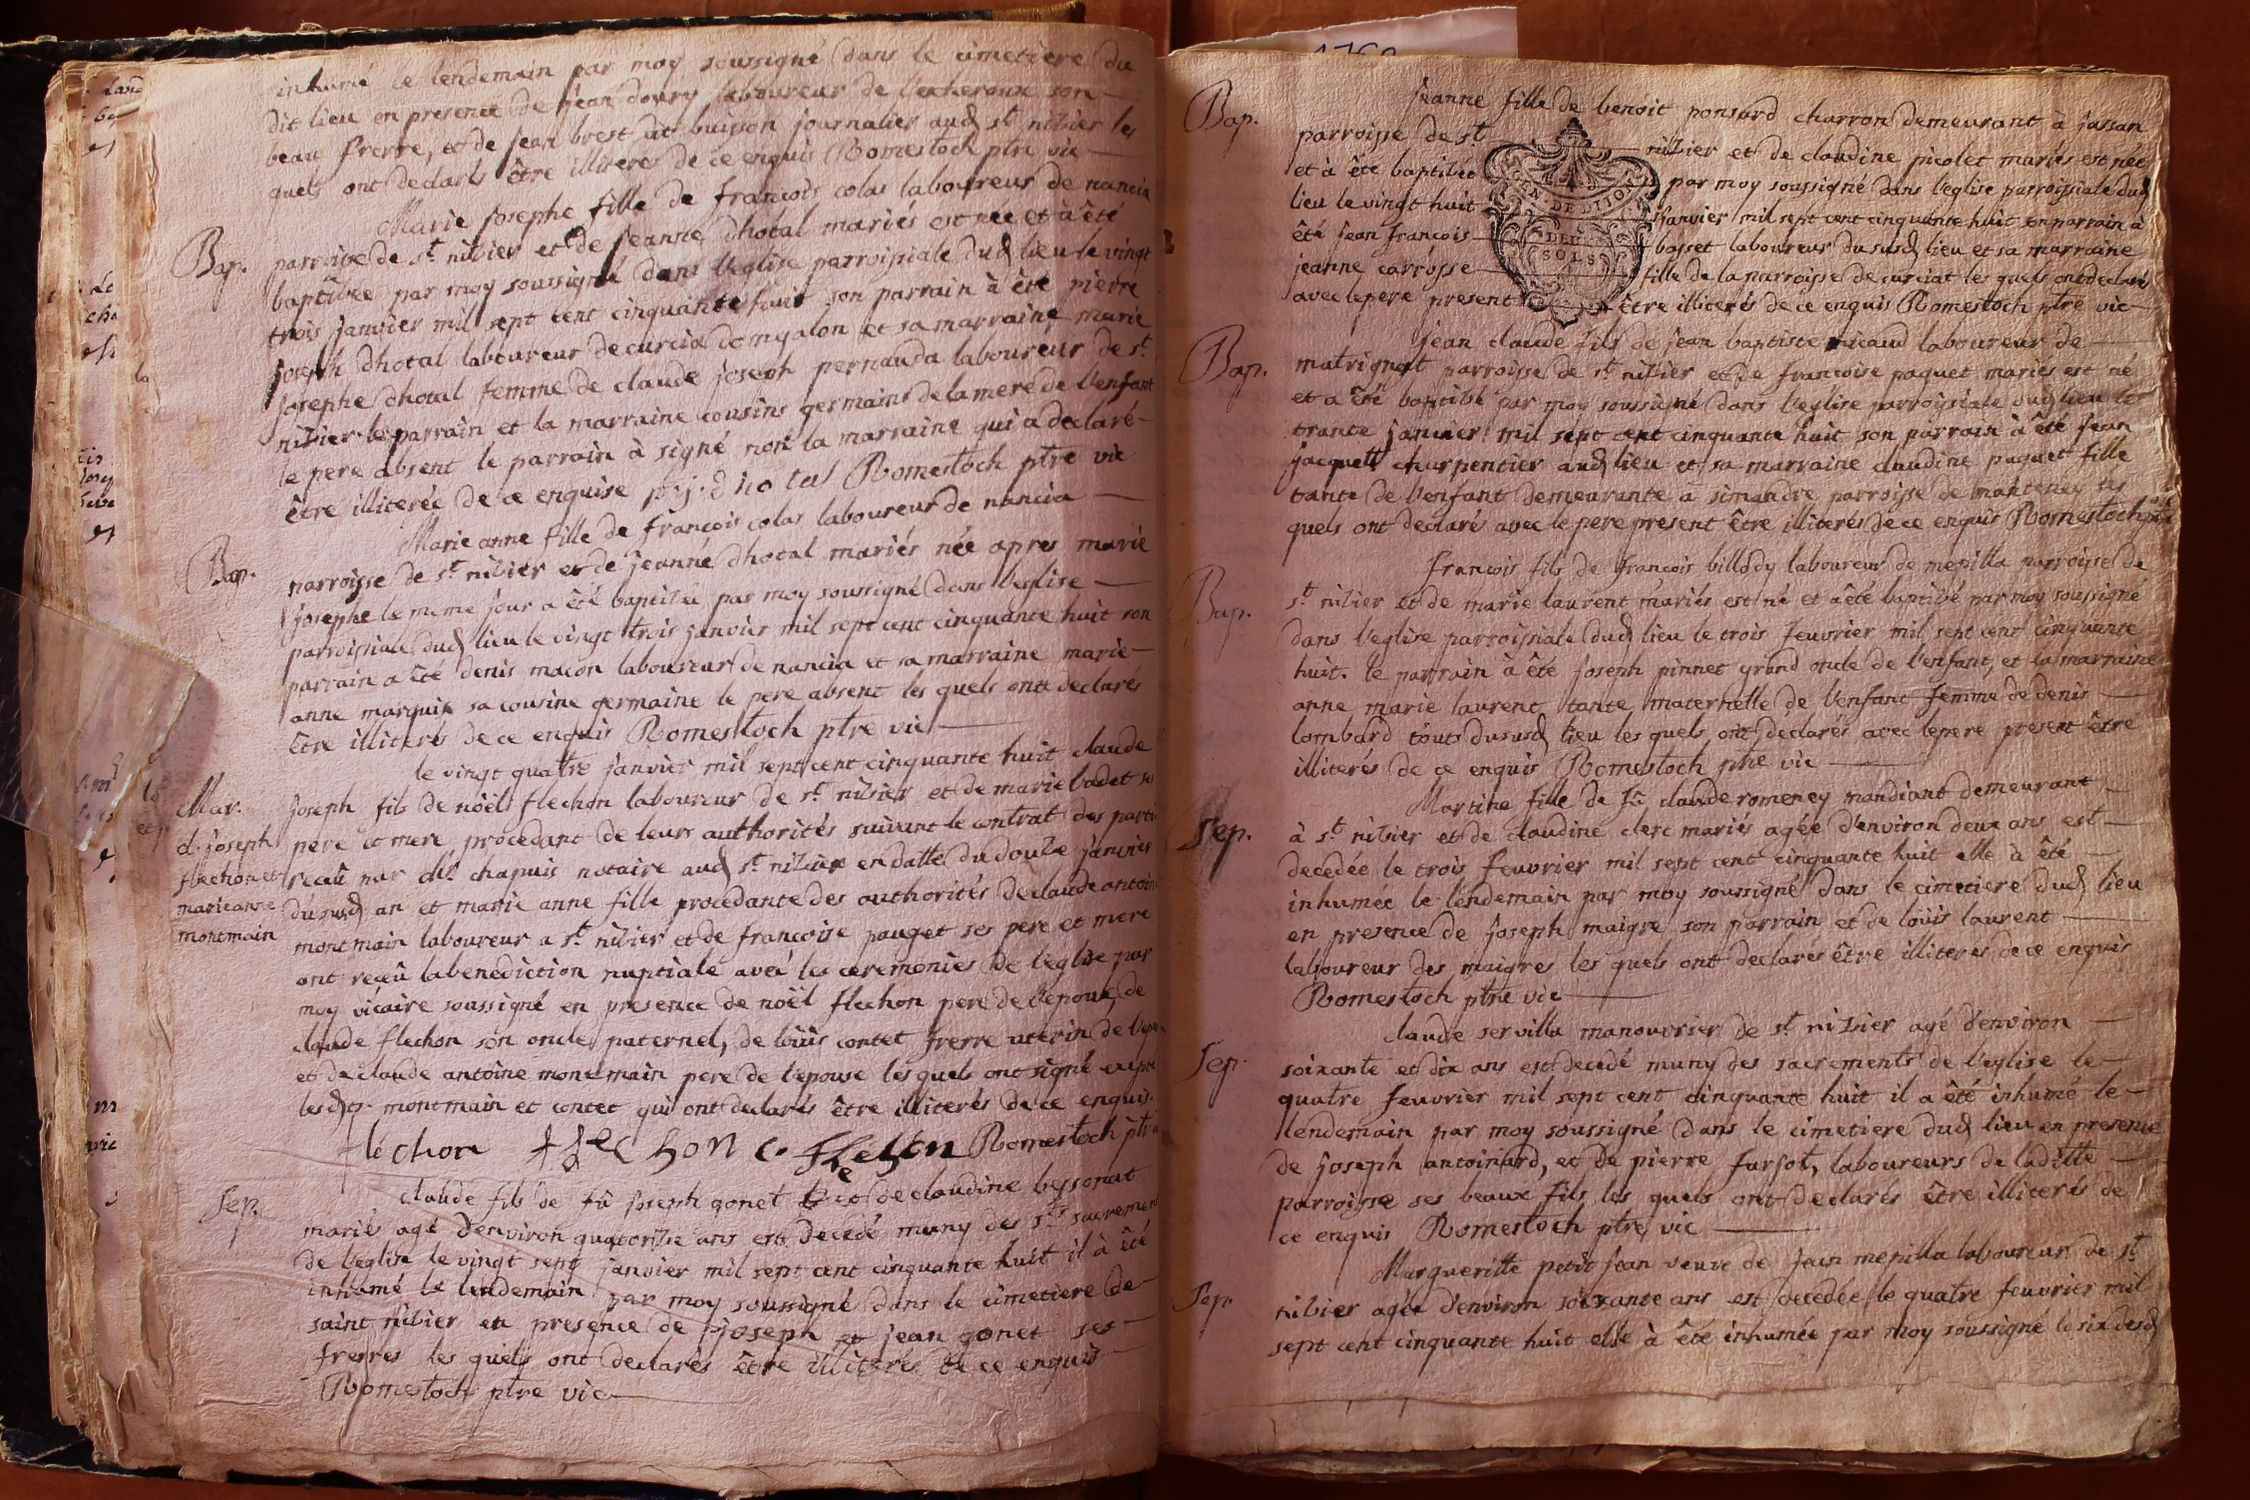 inhumé le lendemain par moy soussigné dans le cimetiere du
dit lieu en presence de jean doury laboureur de son
beau frerre, et de jean brest dit buisson journalier aud st nibier les
quels ont declarés être illiteres de ce enquis Romestoch ptre vic
Bap.
Marie josephe fille de francois colas laboureur de nancia
parroisse de st nibier et de jeanne dhotal mariés est née et à été
baptisée par moy soussigné dans l'eglise parroissiale dud lieu le vingt
trois janvier mil sept cent cinquante huit son parrain à été pierre
joseph dhotal laboureur de curcia domgalon et sa marraine marie
josephe dhotal femme de claude joseph pernauda laboureur de st
nibier le parrain et la marraine cousins germains de la mere de l'enfant
le pere absent le parrain à signé non la marraine qui a declaré
être illiterée de ce enquise p.j.dhotal Romestoch ptre vic
Bap.
Marie anne fille de francois colas laboureur de nancia
parroisse de st nibier et de jeanne dhotal mariés née apres marie
josephe le meme jour a été baptisée par moy soussigné dans l'eglise
parroissiale dud lieu le vingt trois janvier mil sept cent cinquante huit son
parrain a été denis macon laboureur de nancia et sa marraine marie
anne marquis sa cousine germaine le pere absent les quels ont declarés
être illiterés de ce enquis Romestoch ptre vic
Mar.
cl. joseph
flechon et
marie anne
montmain
le vingt quatre janvier mil sept cent cinquante huit claude
joseph fils de nöel flechon laboureur de st nibier et de marie badet ses
pere et mere, procedant de leurs authorités suivant le contrat des parti
receû par chapuis notaire aud st nibier en datte du douze janvier
du susd an et marie anne fille procedante des authorités de claude antoine
montmain laboureur a st nibier et de francoise pauget ses pere et mere
ont receû la benediction nuptiale avec les ceremonies de l'eglise par
moy vicaire soussigné en presence de nöel flechon pere de l'epoux, de
claude flechon son oncle paternel, de loüis contet frerre uterin de l'epoux
et de claude antoine montmain pere de l'epouse les quels ont signé excepté
lesd montmain et contet qui ont declarés être illiterés de ce enquis.
flechon flechon c. flechon Romestoch ptre
Sep.
Claude fils de fû joseph gonet et de claudine bessonat
mariés agé d'environ quatorze ans est decedé muny des sts sacrements
de l'eglise le vingt sept janvier mil sept cent cinquante huit il à été
inhumé le lendemain par moy soussigné dans le cimetiere de
saint nibier en presence de joseph et jean gonet ses
frerres les quels ont declarés être illiterés de ce enquis
Romestoch ptre vic
Bap.
jeanne fille de benoit ponsard charron demeurant à jassan
parroisse de st nibier et de claudine picolet mariés est née
et à été baptisée par moy soussigné dans l'eglise parroissiale dud
lieu le vingt huit janvier mil sept cent cinquante huit son parrain à
été jean francois basset laboureur du susd lieu et sa marraine
jeanne carrosse fille de la parroisse de curciat les quels ont declaré
avec le pere present être illiterés de ce enquis Romestoch ptre vic
GEN. DE DIJON
DEUX
SOLS
Bap.
jean claude fils de jean baptiste micaud laboureur de
matrignat parroisse de st nibier et de francoise paquet mariés est né
et a été baptisé par moy soussigné dans l'eglise parroissiale dud lieu le
trante janvier mil sept cent cinquante huit son parrain à été jean
jacquet charpentier aud lieu et sa marraine claudine paquet fille
tante de l'enfant demeurante à simandre parroisse de manteney les
quels ont declarés avec le pere present être illiterés de ce enquis Romestoch
Bap.
francois fils de francois billoddy laboureur de mepilla parroisse de
st nibier et de marie laurent mariés est né et à été baptisé par moy soussigné
dans l'eglise parroissiale dud lieu le trois feuvrier mil sept cent cinquante
huit. le parrain à été joseph pinnet grand oncle de l'enfant, et la marraine
anne marie laurent tante maternelle de l'enfant femme de denis
lombard touts du susd lieu les quels ont declarés avec le pere present être
illiterés de ce enquis Romestoch ptre vic
Sep.
Martine fille de fû claude romeney mandiant demeurant
à st nibier et de claudine clerc mariés agée d'environ deux ans est
decedée le trois feuvrier mil sept cent cinquante huit elle à été
inhumée le lendemain par moy soussigné dans le cimetiere dud lieu
en presence de joseph maigre son parrain et de loüis laurent
laboureur des maigres les quels ont declarés être illiterés de ce enquis
Romestoch ptre vic
Sep.
claude servilla manouvrier de st nibier agé d'environ
soixante et dix ans est decedé muny des sacrements de l'eglise le
quatre feuvrier mil sept cent cinquante huit il a été inhumé le
lendemain par moy soussigné dans le cimetiere dud lieu en presence
de joseph antoinard, et de pierre farjot, laboureurs de laditte
parroisse ses beaux fils les quels ont declarés être illiterés de
ce enquis Romestoch ptre vic
Sep.
Margueritte petit jean veuve de jean mepilla laboureur de st
nibier agée d'environ soixante ans est decedée le quatre feuvrier mil
sept cent cinquante huit elle à été inhumée par moy soussigné le six desd